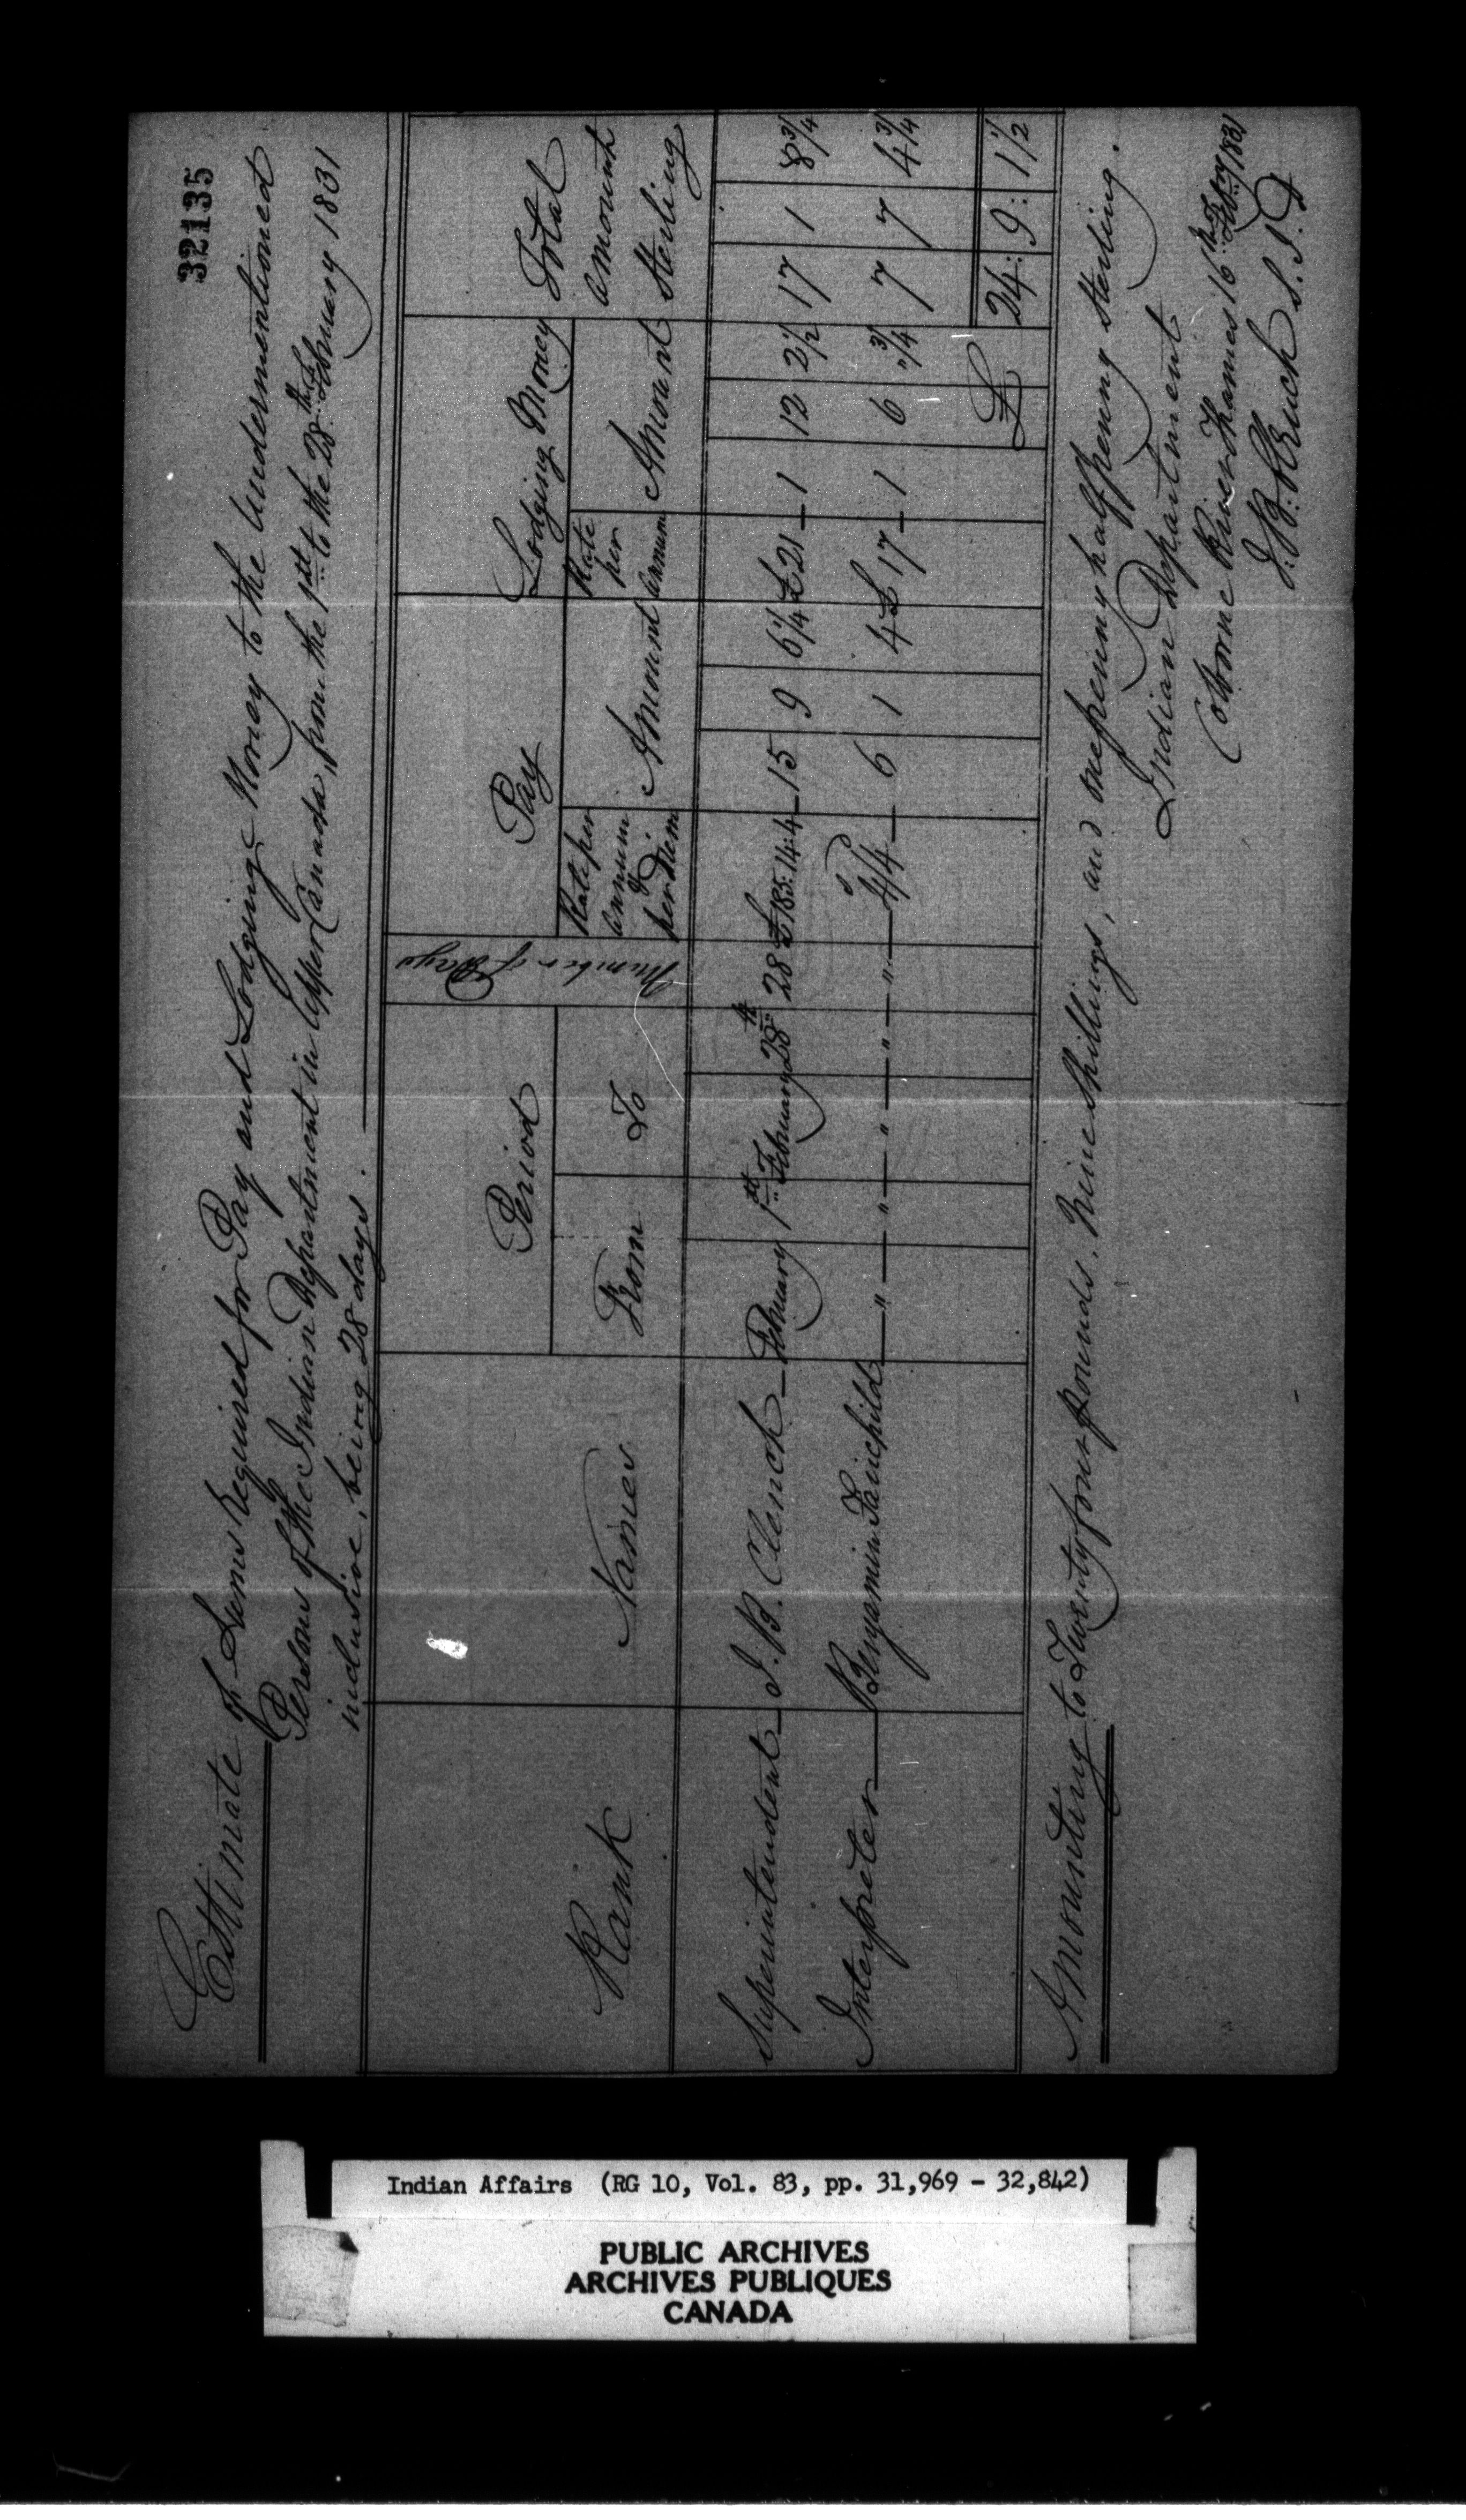 32135
Estimate of Sums Required for Pay and Lodging Money to the Undermentioned
Persons of the Indian Department in Upper Canada, from the 1st to the 28th February 1831
inclusive, being 28 days.
Rank Names Period Number of Days Pay Lodging Money Total amount Sterling
From To Rate per annum & per diem Amount Rate per annum Amount
Superintendent — J. B. Clench — February 1st February 28th 28 £183:14:4 — 15 9 6 1/4 £21 — 1 12 2 1/2 17 1 8 3/4
Interpreter — Benjamin Fairchild — " — " — " — " — " — s d 4/4 — 6 1 4 £17 — 1 6 " 3/4 7 7 4 3/4
£ 24: 9: 1 1/2
Amounting to Twenty four pounds, Nine Shillings, and one penny halfpenny Sterling.
Indian Department
Colborne River Thames 16th Feby 1831
J. B. Clench S. I. D
Indian Affairs (RG 10, Vol. 83, pp. 31,969 - 32,842)
PUBLIC ARCHIVES
ARCHIVES PUBLIQUES
CANADA